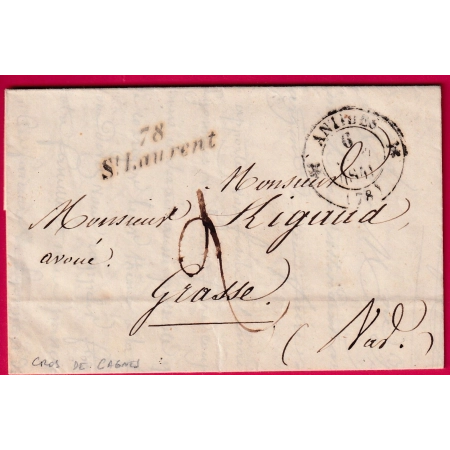 78
St Laurent
ANTIBES
6
1841
(78)
Monsieur
Monsieur Rigaud
avoué.
Grasse.
(Var.)
CROS DE CAGNES